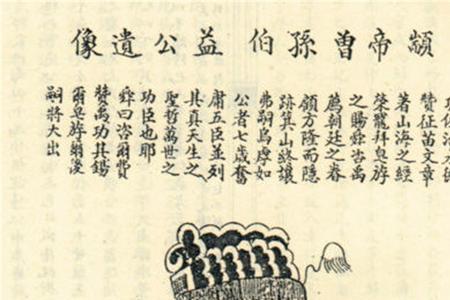 顓帝曾孫伯益公遺像
治水
贊征苗文章
著山海之經
榮寵拜皂斿
之賜舜咨禹
薦朝廷之眷
顧方隆而隱
跡箕山終讓
弗嗣烏虖如
公者七歲奮
庸五臣並列
其真天生之
聖哲萬世之
功臣也耶
舜曰咨爾費
贊禹功其錫
爾皂斿爾後
嗣將大出